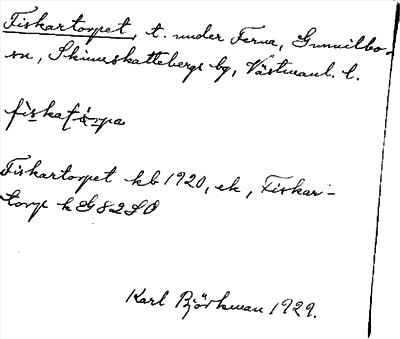 Fiskartorpet, t. under Ferna, Gunnilbo
sn, Skinnskattebergs bg, Västmanl. l.
Fiskartorpet kb 1920, ek, Fiskar-
torp k G82SO
Karl Björkman 1929.